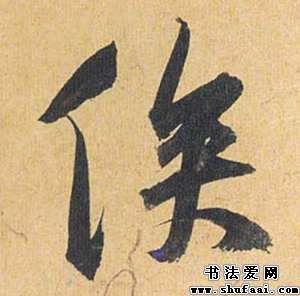 俟
书法爱网
www.shufaai.com